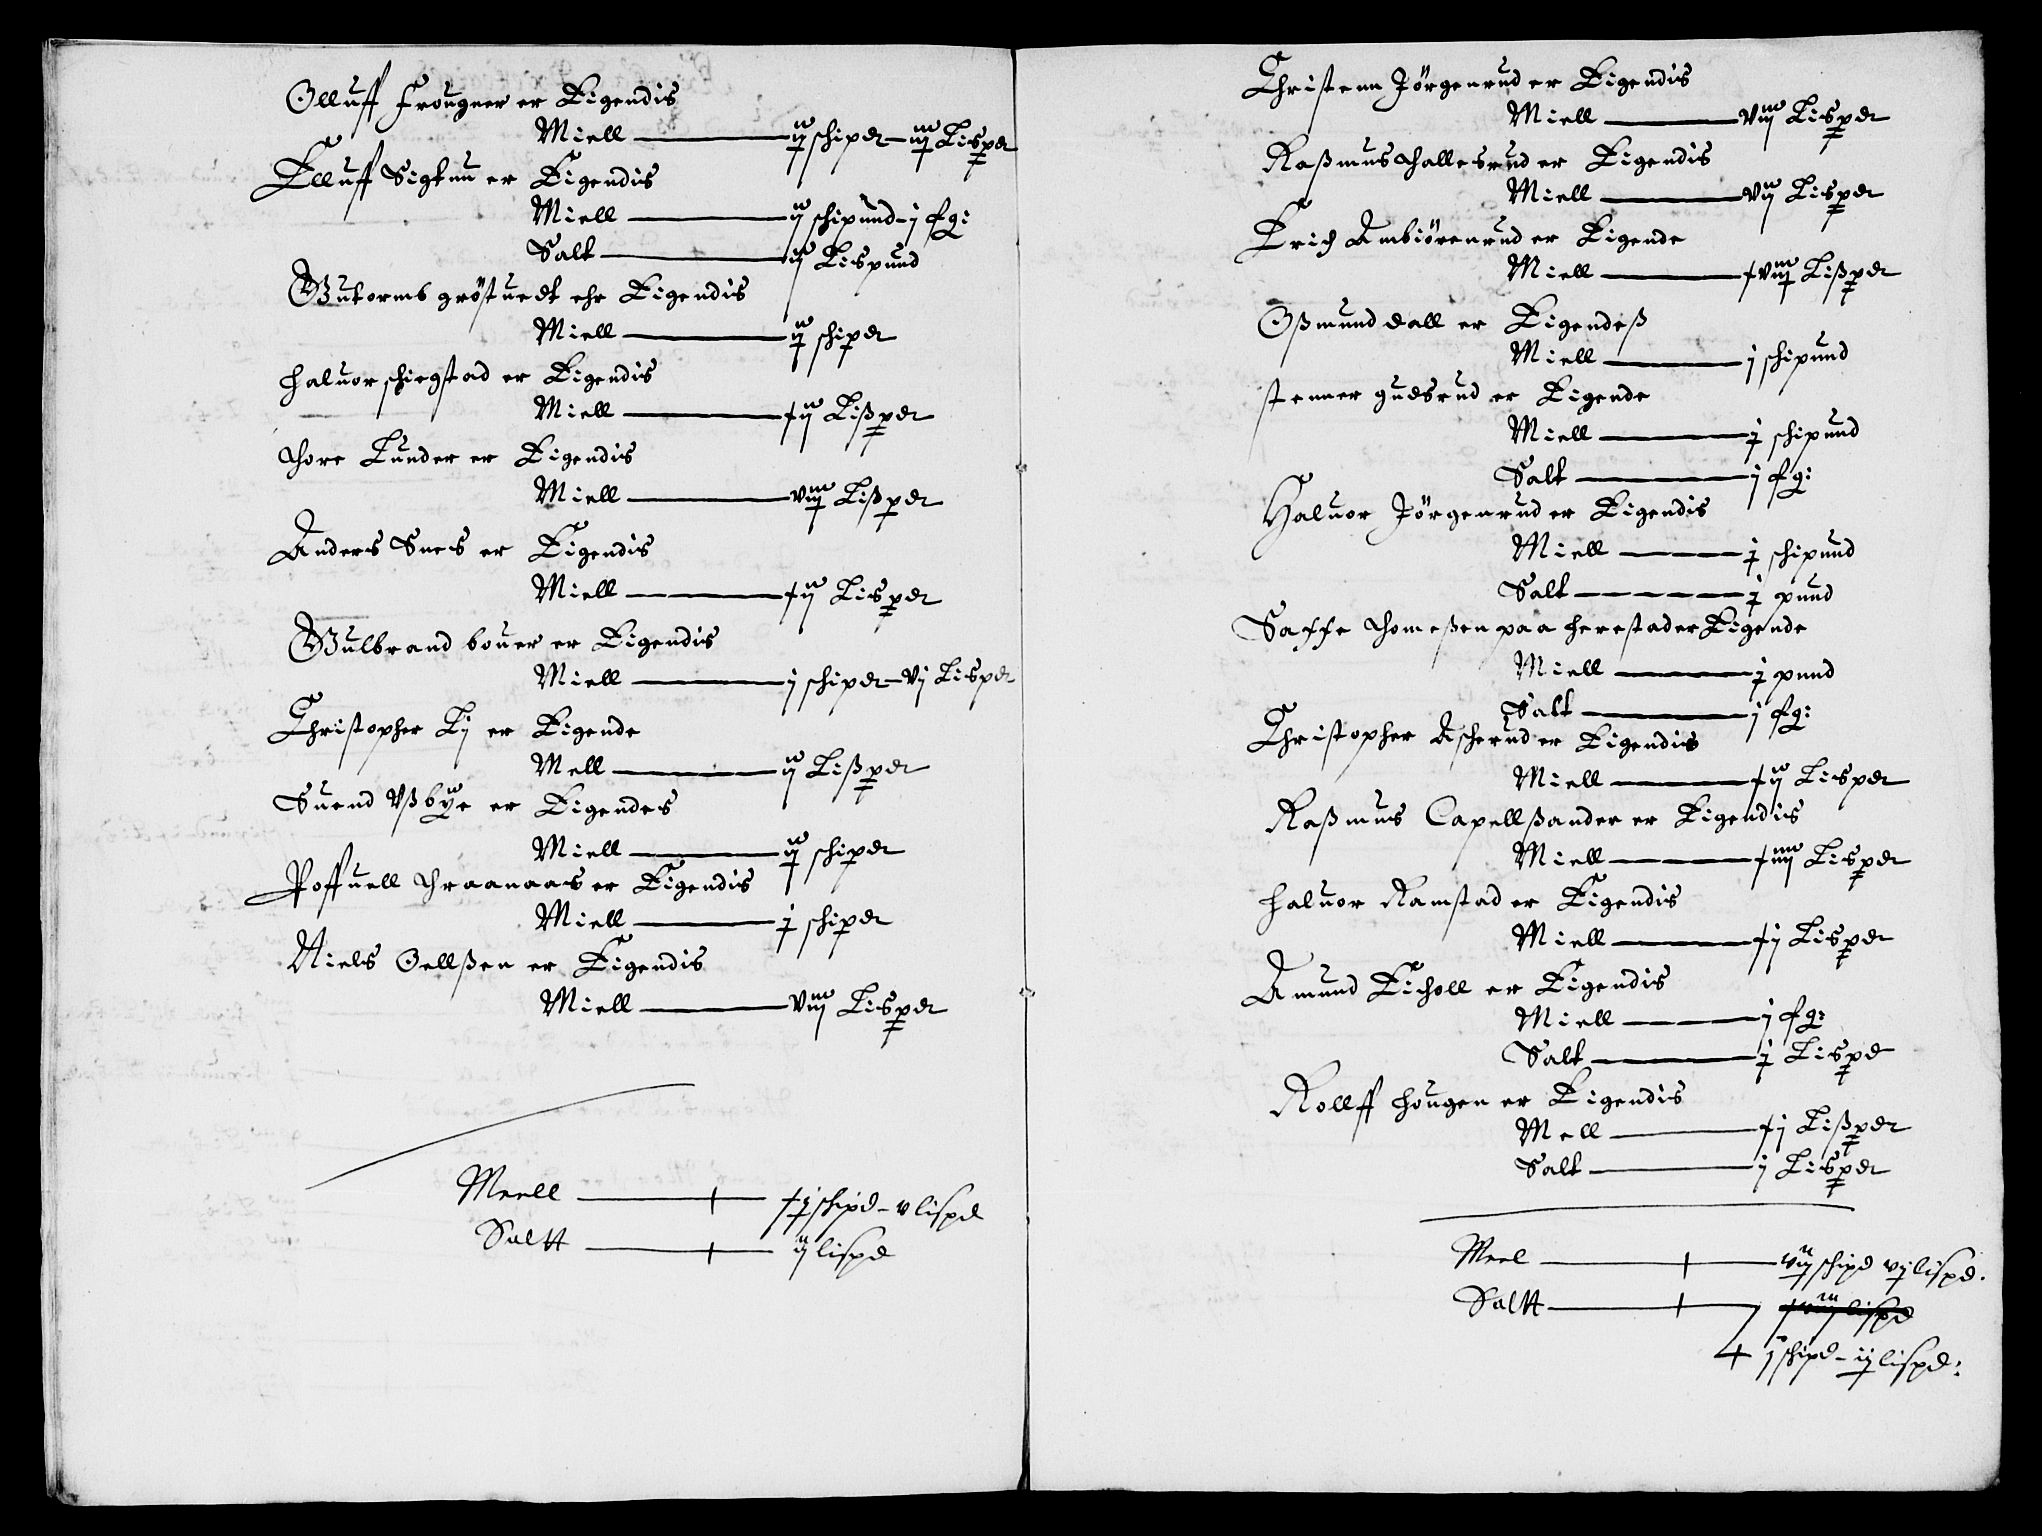 Olluff Frougner er Eigendis
Miell — ij schipdt — iij Lispdt
Elluff Sigstuu er Eigendis
Miell — ij schipund — j fg:
Salt — ij Lispund
Gutorms gröstuedt ehr Eigendis
Miell — ij schipdt
Haluor schiegstad er Eigendis
Miell — xij Lißpdt
Thore Lunder er Eigendis
Miell — viij Lißpdt
Anders Snes er Eigendis
Miell — xij Lispdt
Gulbrand bouer er Eigendis
Miell — j schipdt — vj Lispdt
Christopher Lij er Eigende
Mell — ij Lißpdt
Suend Vßbÿe er Eigendes
Miell — ij schipdt
Poffuell Thraanaas er Eigendis
Miell — j schipdt
Niels Oellßen er Eigendis
Miell — viij Lispdt
Meell — xj schipd — v lispd
Saltt — ij lispd
Christenn Jörgenrud er Eigendis
Miell — viij Lispdt
Raßmus Thallesrud er Eigendis
Miell — vij Lispdt
Erich Ambiörenrud er Eigende
Miell — xviij Lißpdt
Oßmund dall er Eigendeß
Miell — j schipund
stenner gudsrud er Eigende
Miell — j schipund
Salt — j fg:
Haluor Jörgenrud er Eigendis
Miell — j schipund
Salt — j pund
Saffe Thomeßen paa herestad er Eigende
Miell — j pund
Salt — j fg:
Christopher Ascherud er Eigendis
Miell — xij Lispdt
Raßmus Capellßander er Eigendis
Miell — xiiij Lispdt
Haluor Ramstad er Eigendis
Miell — xj Lispdt
Amund Eicholl er Eigendis
Miell — j fg:
Salt — j Lispd
Rollff Hougen er Eigendis
Mell — xj Lißpdt
Salt — j Lispdt
Meel — vij schipd vj lispd.
Saltt — xviij lispd
j schipd — ij lispd: